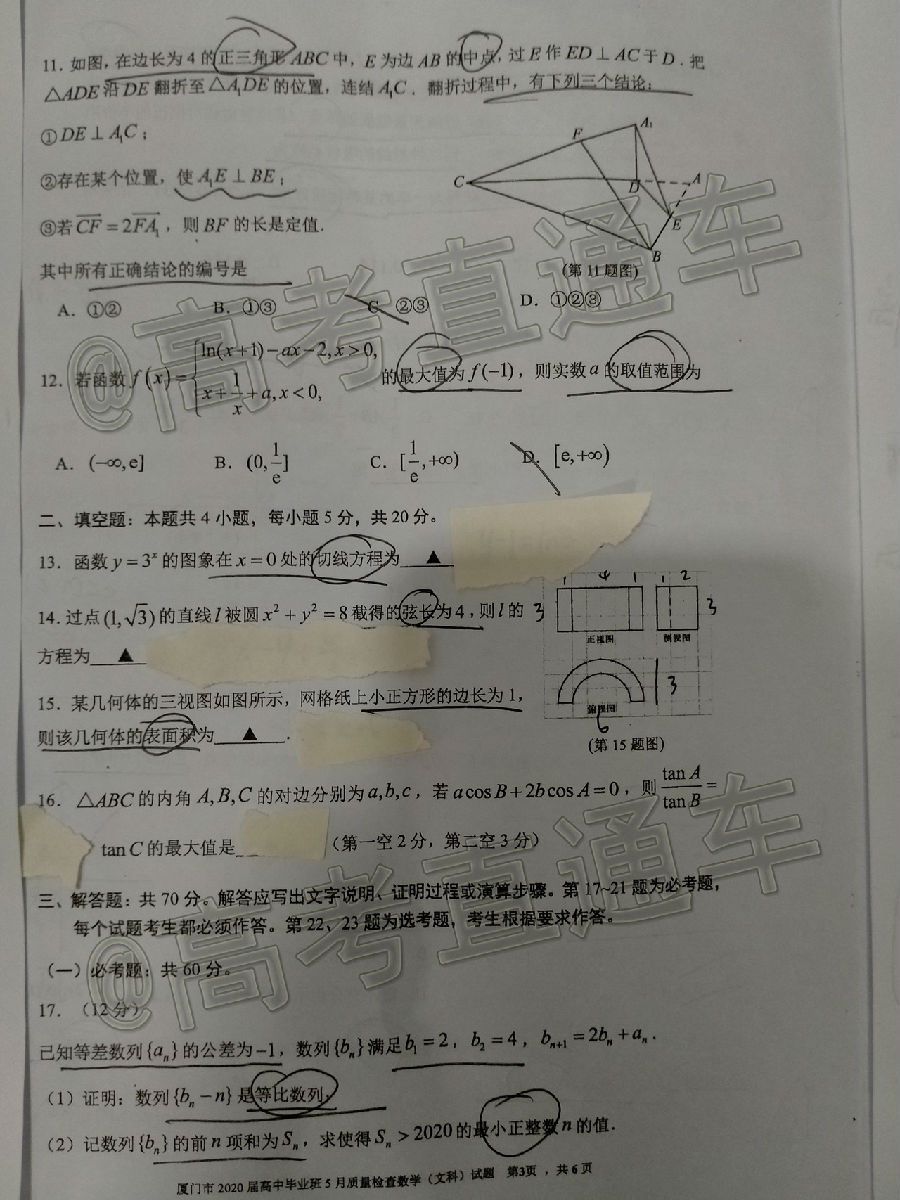 11. 如图, 在边长为 4 的正三角形 ABC 中, E 为边 AB 的中点, 过 E 作 ED ⊥ AC 于 D . 把
△ADE 沿 DE 翻折至 △A₁DE 的位置, 连结 A₁C . 翻折过程中, 有下列三个结论:
①DE ⊥ A₁C ;
②存在某个位置, 使 A₁E ⊥ BE ;
③若 \overrightarrow{CF} = 2\overrightarrow{FA₁} , 则 BF 的长是定值.
其中所有正确结论的编号是
A. ①② B. ①③ C. ②③ D. ①②③
A₁
F
C
D
A
E
B
(第 11 题图)
12. 若函数 f(x) = { ln(x+1)−ax−2, x>0, x+1/x+a, x<0, 的最大值为 f(−1) , 则实数 a 的取值范围为
A. (−∞,e] B. (0,1/e] C. [1/e,+∞) D. [e,+∞)
二、填空题: 本题共 4 小题, 每小题 5 分, 共 20 分。
13. 函数 y = 3ˣ 的图象在 x = 0 处的切线方程为 ▲
14. 过点 (1,√3) 的直线 l 被圆 x² + y² = 8 截得的弦长为 4 , 则 l 的
方程为 ▲
15. 某几何体的三视图如图所示, 网格纸上小正方形的边长为 1 ,
则该几何体的表面积为 ▲ .
1 4 1 2
3 3
正视图 侧视图
3
俯视图
6
(第 15 题图)
16. △ABC 的内角 A,B,C 的对边分别为 a,b,c , 若 a cos B + 2b cos A = 0 , 则 tan A/tan B =
tan C 的最大值是 (第一空 2 分, 第二空 3 分)
三、解答题: 共 70 分。解答应写出文字说明、证明过程或演算步骤。第 17~21 题为必考题,
每个试题考生都必须作答。第 22、23 题为选考题, 考生根据要求作答。
(一) 必考题: 共 60 分。
17. (12 分)
已知等差数列 {aₙ} 的公差为 −1 , 数列 {bₙ} 满足 b₁ = 2 , b₂ = 4 , bₙ₊₁ = 2bₙ + aₙ .
(1) 证明: 数列 {bₙ − n} 是等比数列;
(2) 记数列 {bₙ} 的前 n 项和为 Sₙ , 求使得 Sₙ > 2020 的最小正整数 n 的值.
厦门市 2020 届高中毕业班 5 月质量检查数学 (文科) 试题 第3页 , 共 6 页
@高考直通车
@高考直通车